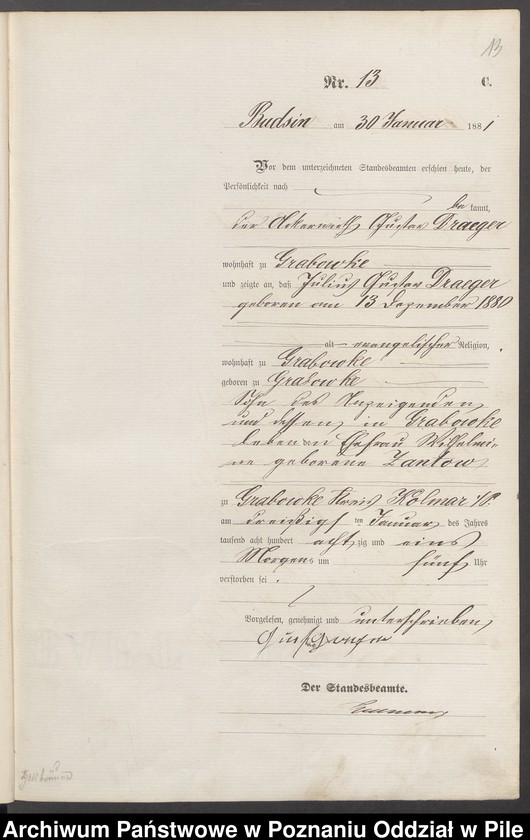 13
Nr. 13 C.
Budsin am 30 Januar 1881
Vor dem unterzeichneten Standesbeamten erschien heute, der
Persönlichkeit nach
bekannt,
der Ackerwirth Gustav Draeger
wohnhaft zu Grabowke
und zeigte an, daß Julius Gustav Draeger
geboren am 13 Dezember 1880
alt evangelischer Religion,
wohnhaft zu Grabowke
geboren zu Grabowke
Sohn des Anzeigenden
und dessen in Grabowke
lebenden Ehefrau Wilhelmi-
ne geborene Zantow
zu Grabowke Kreis Kolmar i/P.
am dreißigsten Januar des Jahres
tausend acht hundert achtzig und eins
Morgens um fünf Uhr
verstorben sei.
Vorgelesen, genehmigt und unterschrieben
Der Standesbeamte.
Archiwum Państwowe w Poznaniu Oddział w Pile